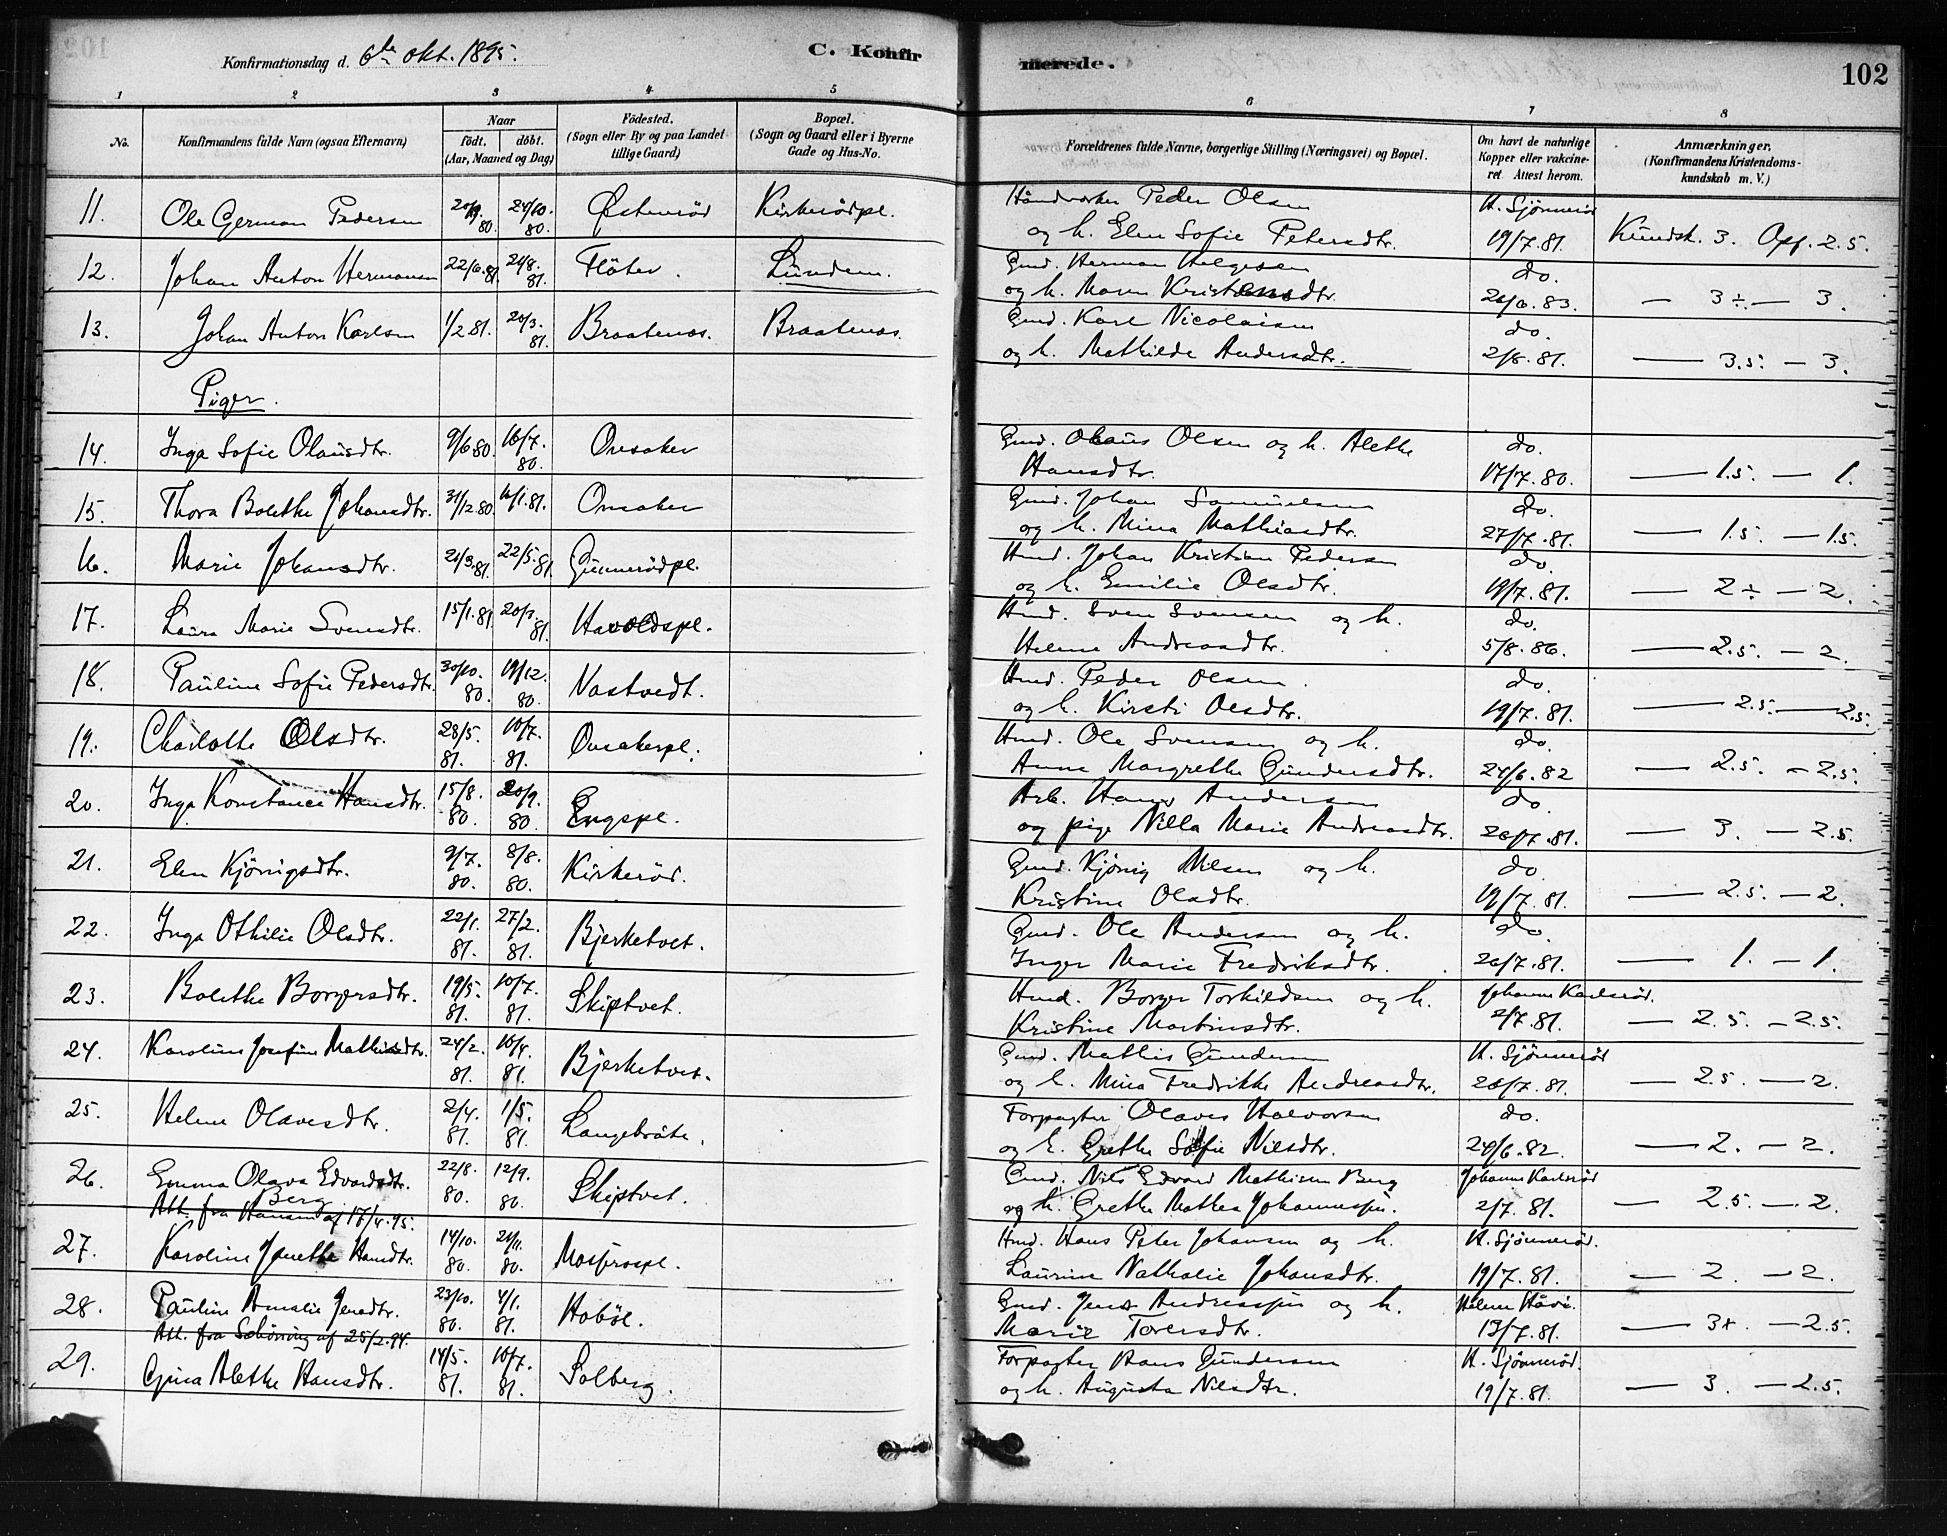 Konfirmationsdag d. 6te Okt. 1895.
C. Konfirmerede.
102
1 2 3 4 5 6 7 8
No.
Konfirmandens fulde Navn (ogsaa Efternavn)
Naar
født. døbt.
(Aar, Maaned og Dag)
Fødested.
(Sogn eller By og paa Landet
tillige Gaard)
Bopæl.
(Sogn og Gaard eller i Byerne
Gade og Hus-No.
Forældrenes fulde Navne, borgerlige Stilling (Næringsvei) og Bopæl.
Om havt de naturlige
Kopper eller vakcine-
ret Attest herom.
Anmærkninger.
(Konfirmandens Kristendoms-
kundskab m. V.)
11. Ole German Pedersen 20/9. 80. 24/10. 80. Østenrød Kirkerødpl. Håndverker Peder Olsen H. Sjønnerød
og h. Elen Sofie Petersdtr. 19/7. 81. Kundsk. 3. Opf. 2.5.
12. Johan Anton Hermansen 22/6. 81. 21/8. 81. Fløter. Lundem. Gmd. Herman Helgesen do.
og h. Maren Kristensdtr. 26/6. 83. — 3 ÷ — 3.
13. Johan Anton Karlsen 1/2 81. 20/3. 81. Braatenas. Braatenas. Gmd. Karl Nicolaisen do
og h. Mathilde Andersdtr. 2/8. 81. — 3.5. — 3.
Piger.
14. Inga Sofie Olausdtr. 9/6 80. 18/7. 80. Onsaker Gmd. Olaus Olsen og h. Alethe do.
Hansdtr. 17/7. 80. — 1.5 — 1.
15. Thora Bolethe Johansdtr. 31/12. 80 16/1. 81. Onsaker Gmd. Johan Samuelsen do.
og h. Mina Mathiasdtr. 27/7. 81. — 1.5. — 1.5.
16. Marie Johansdtr. 21/3. 81. 22/5. 81. Gunnerødpl. Hmd. Johan Kristian Pedersen do.
og h. Emilie Olsdtr. 19/7. 81. — 2 ÷ — 2.
17. Laura Marie Svensdtr. 15/1. 81 20/3. 81. Havoldspl. Hmd. Sven Svensen og h. do.
Helene Andreasdtr. 5/8. 86. — 2.5. — 2.
18. Pauline Sofie Pedersdtr. 30/10. 80. 19/12. 80. Vastvedt. Hmd. Peder Olsen. do.
og h. Kirsti Olsdtr. 19/7. 81. — 2.5. — 2.5.
19. Charlotte Olsdtr. 28/5. 81. 10/7. 81. Onsakerpl. Hmd. Ole Svensen og h. do.
Anna Margrethe Gundersdtr. 24/6. 82 — 2.5. — 2.5.
20. Inga Konstance Hansdtr. 15/8. 80. 20/9. 80. Engspl. Arb. Hans Andersen do
og pige Nilla Marie Andreasdtr. 26/7. 81. — 3. — 2.5.
21. Elen Kjønigsdtr. 9/7. 80. 8/8. 80. Kirkerød. Gmd. Kjønig Nilsen og h. do.
Kristine Olsdtr. 19/7. 81. — 2.5. — 2.
22. Inga Othilie Olsdtr. 22/1. 81. 27/2. 81. Bjerketvet. Gmd. Ole Andersen og h. do.
Inger Marie Fredriksdtr. 26/7. 81. — 1. — 1.
23. Bolethe Borgersdtr. 19/5. 81. 10/7. 81. Skiptvet. Hmd. Borger Torkildsen og h. Johanne Karlsrød.
Kristine Martinsdtr. 2/7. 81. — 2.5. — 2.5.
24. Karoline Josefine Mathisdtr. 24/2. 81. 10/4. 81. Bjerketvet. Gmd. Mathis Gundersen H. Sjønnerød
og h. Mina Fredrikke Andreasdtr. 26/7. 81. — 2.5. — 2.
25. Helene Olavesdtr. 2/4. 81. 1/5. 81. Langebråte. Forpagter Olaves Halvorsen do.
og h. Grethe Sofie Nilsdtr. 24/6. 82. — 2. — 2.
26. Emma Olava Edvardsdtr. 22/8. 80. 12/9. 80. Skiptvet. Gmd. Nils Edvard Mathisen Berg Johanne Karlsrød
Berg
og h. Grethe Mathea Johannesdtr. 2/7. 81. — 2.5 — 2.
Att. fra Hansen af 17/4. 95.
27. Karoline Janethe Hansdtr. 14/10. 80. 21/11. 80. Mosfrospl. Hmd. Hans Peter Johansen og h. H. Sjønnerød.
Laurine Nathalie Johansdtr. 19/7. 81. — 2. — 2.
28. Pauline Amalie Jensdtr. 23/10. 80. 4/1. 81. Hobøl. Gmd. Jens Andreassen og h. Helene Håvi.
Att. fra Schønning af 25/2. 94.
Marie Toversdtr. 13/7. 81. — 3+. — 2.5.
29. Gina Alethe Hansdtr. 14/5. 81. 10/7. 81. Solberg. Forpagter Hans Gundersen H. Sjønnerød.
og h. Augusta Nilsdtr. 19/7. 81. — 3. — 2.5.